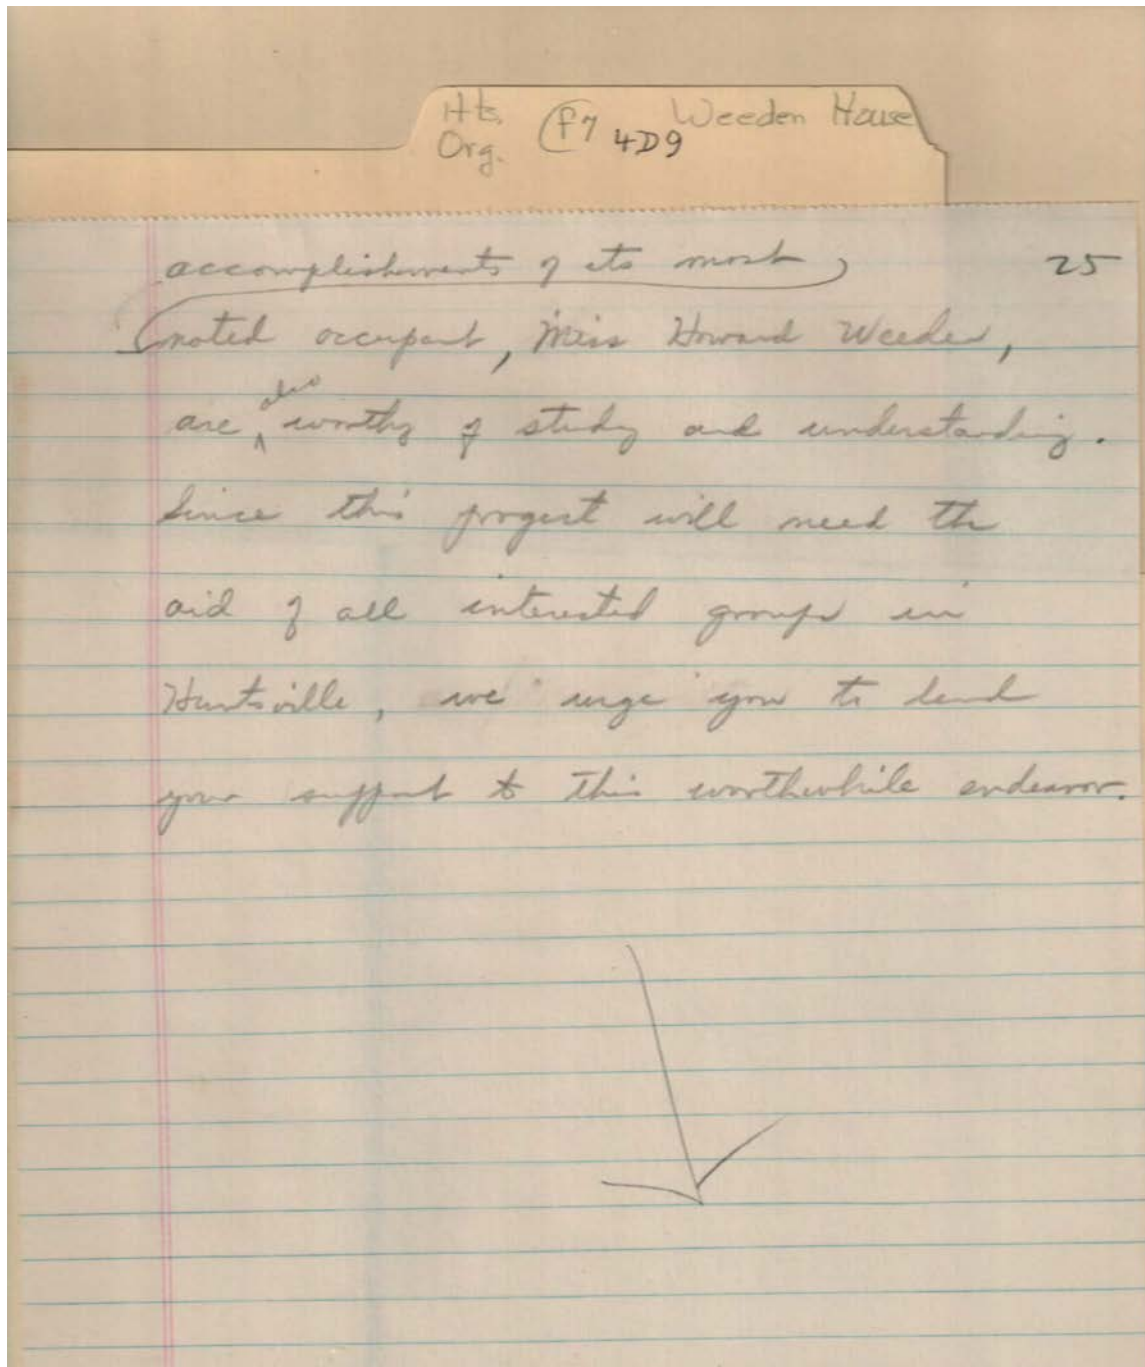 Hts, Weeden House
Org. f7 4D9
accomplishments of its most 25
noted occupant, Miss Howard Weeden,
are also worthy of study and understanding.
Since this project will need the
aid of all interested groups in
Huntsville, we urge you to lend
your support to this worthwhile endeavor.